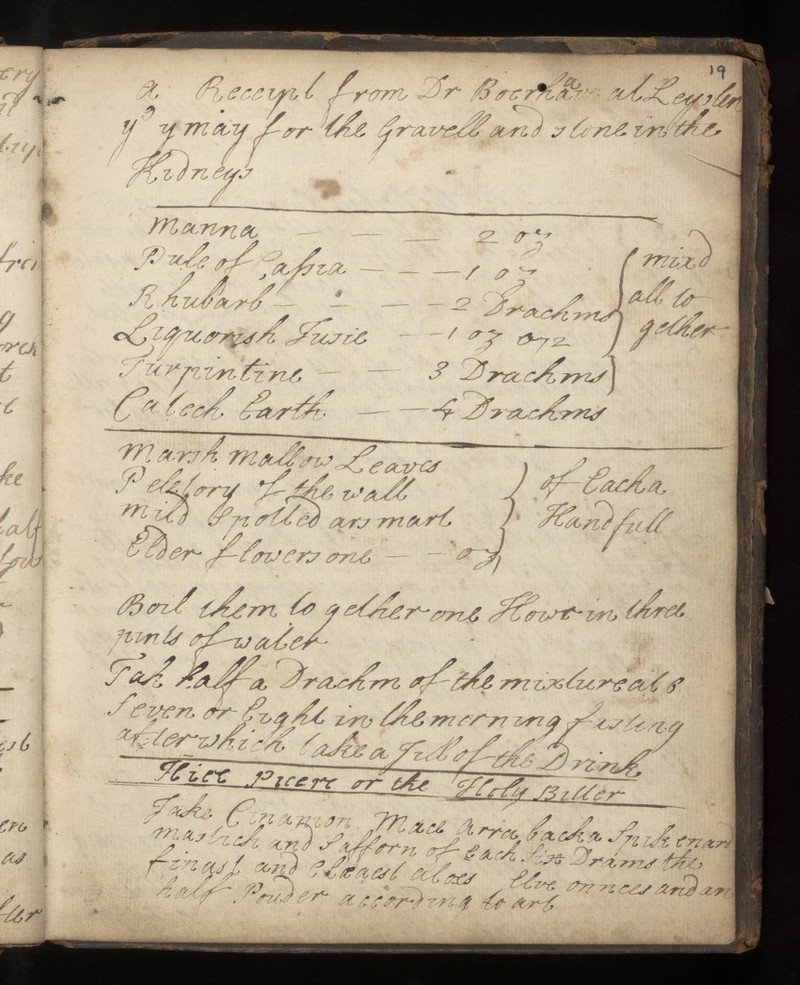 19
A Receipt from Dr Boerhave at Leyden
ye 9 may for the Gravell and stone in the
Kidneys
Manna — — — 2 oz
Pulc of Cassia — — — 1 oz
Rhubarb — — — 2 Drachms
Liquorish Jusie — 1 oz
Turpintine — — 3 Drachms
Catech Earth — — 4 Drachms
mixd
all to
gether
Marsh mallow Leaves
Peletory of the wall
mild Spotted arsmart
Elder flowers one — — oz
of Each a
Handfull
Boil them to gether one Howr in three
pints of water
Tak half a Drachm of the mixture at 6
Seven or Eight in the morning fasting
after which take a Jill of the Drink
Hice Picere or the Holy Bitter
Take Cinamon Mace Assa backa Spikenard
mastich and Safforn of Each Six Drams the
finast and Cleaest aloes Elve onnces and an
half Pouder according to art